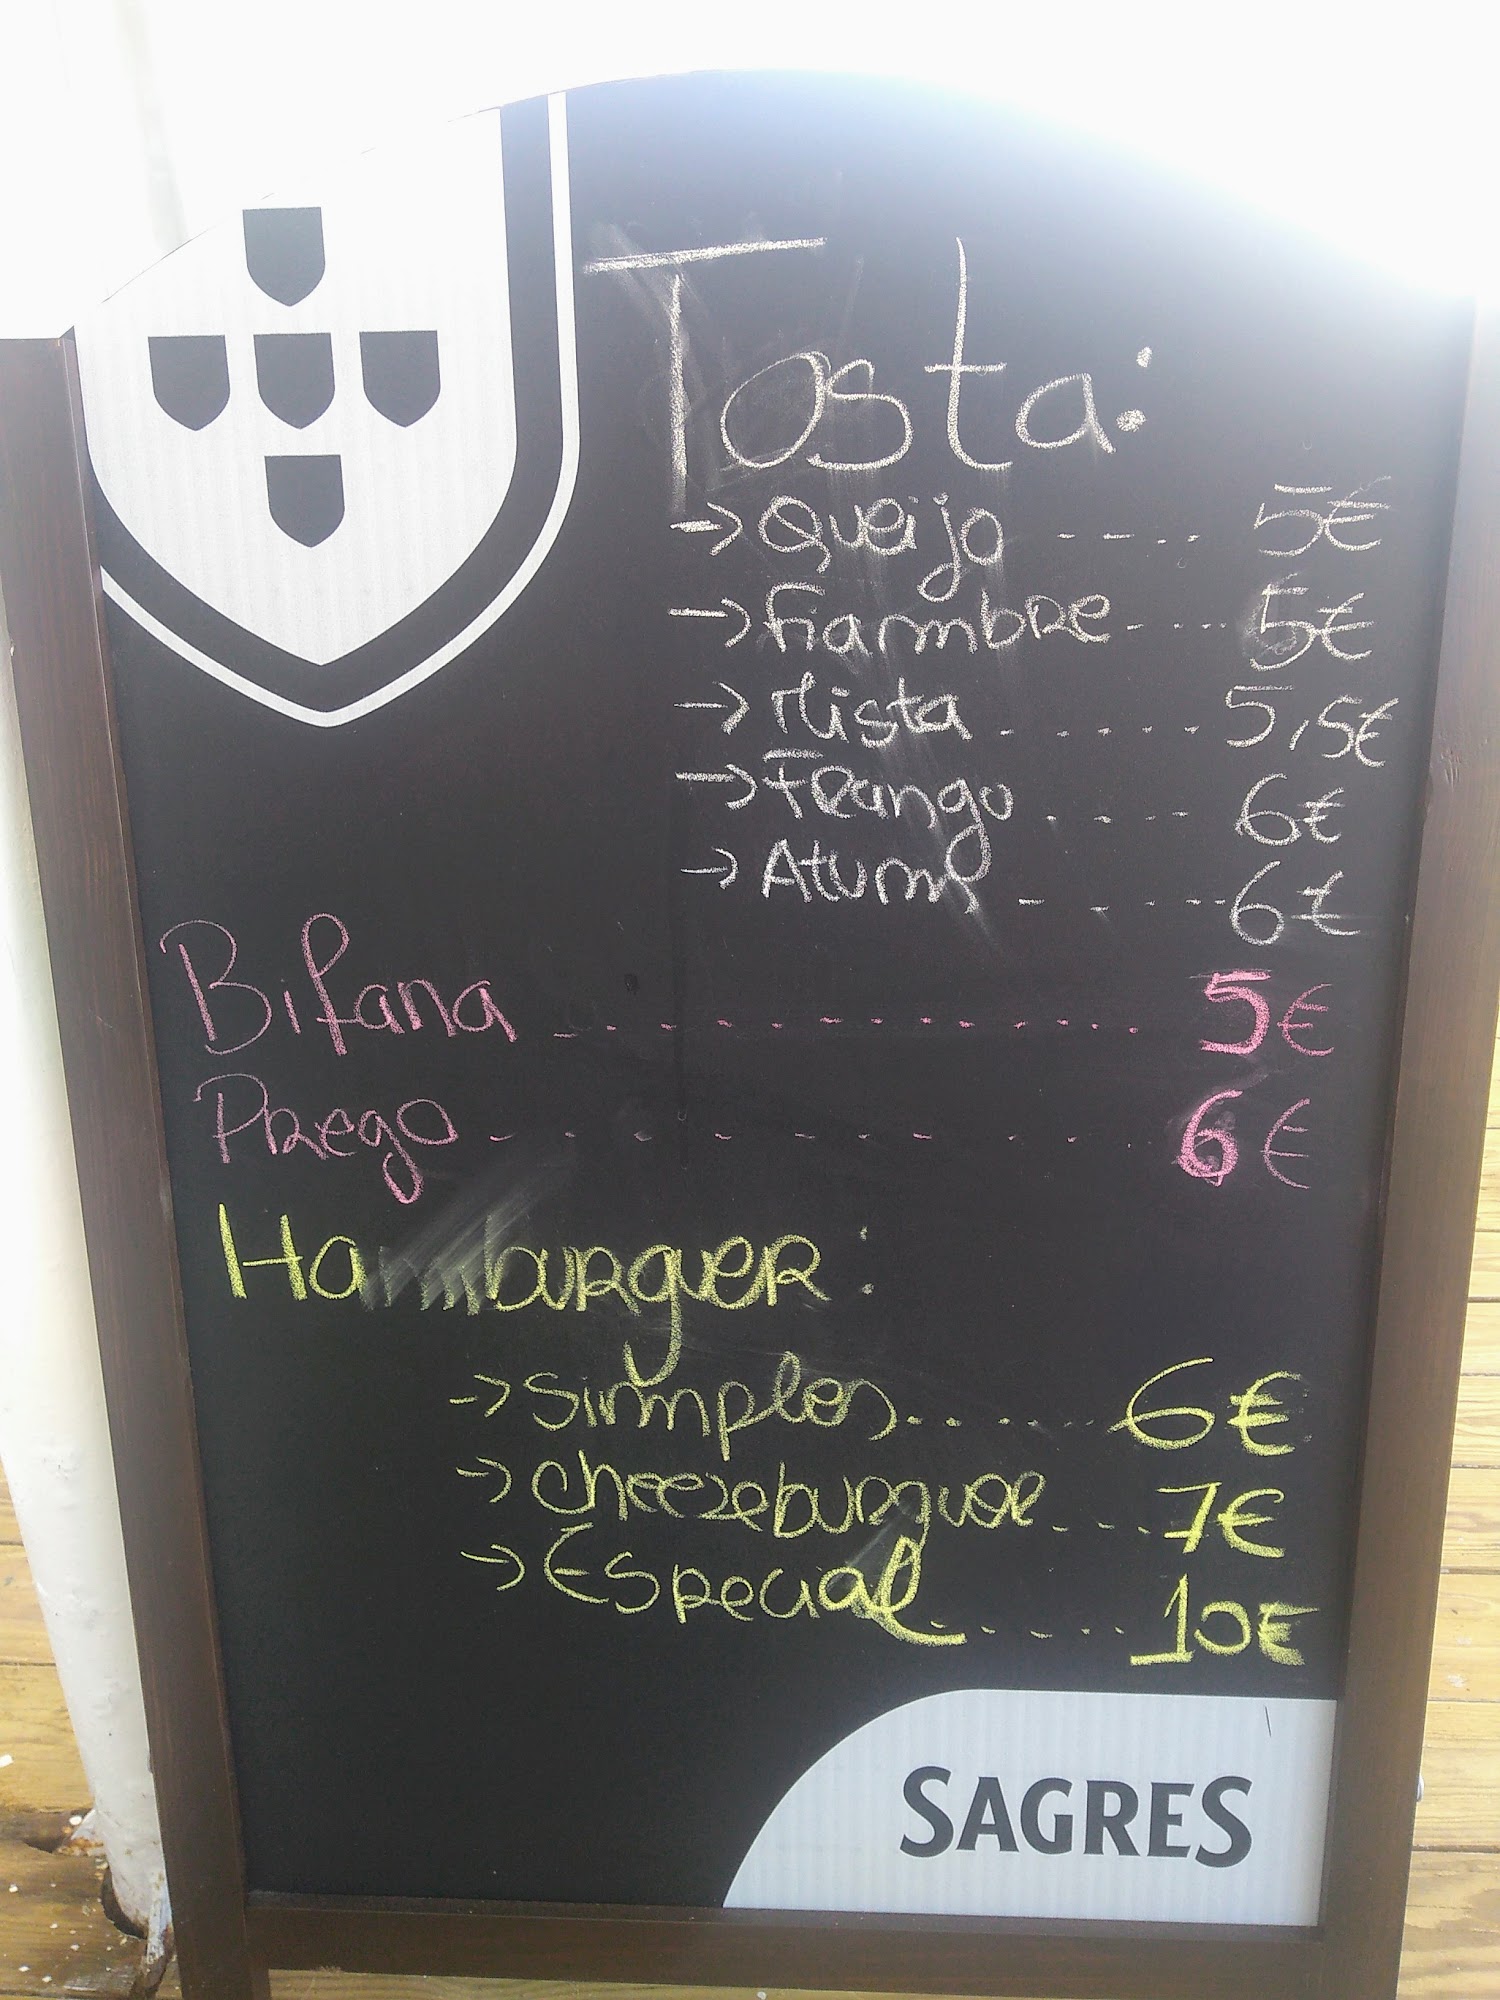 Tosta:
-> Queijo ---- 5€
-> Fiambre ---- 5€
-> Mista ----- 5,5€
-> Frango ---- 6€
-> Atum ---- 6€
Bifana ------------- 5€
Prego --------- 6€
Hamburguer:
-> Simples ..... 6€
-> Cheezeburguer .... 7€
-> Especial ..... 10€
SAGRES